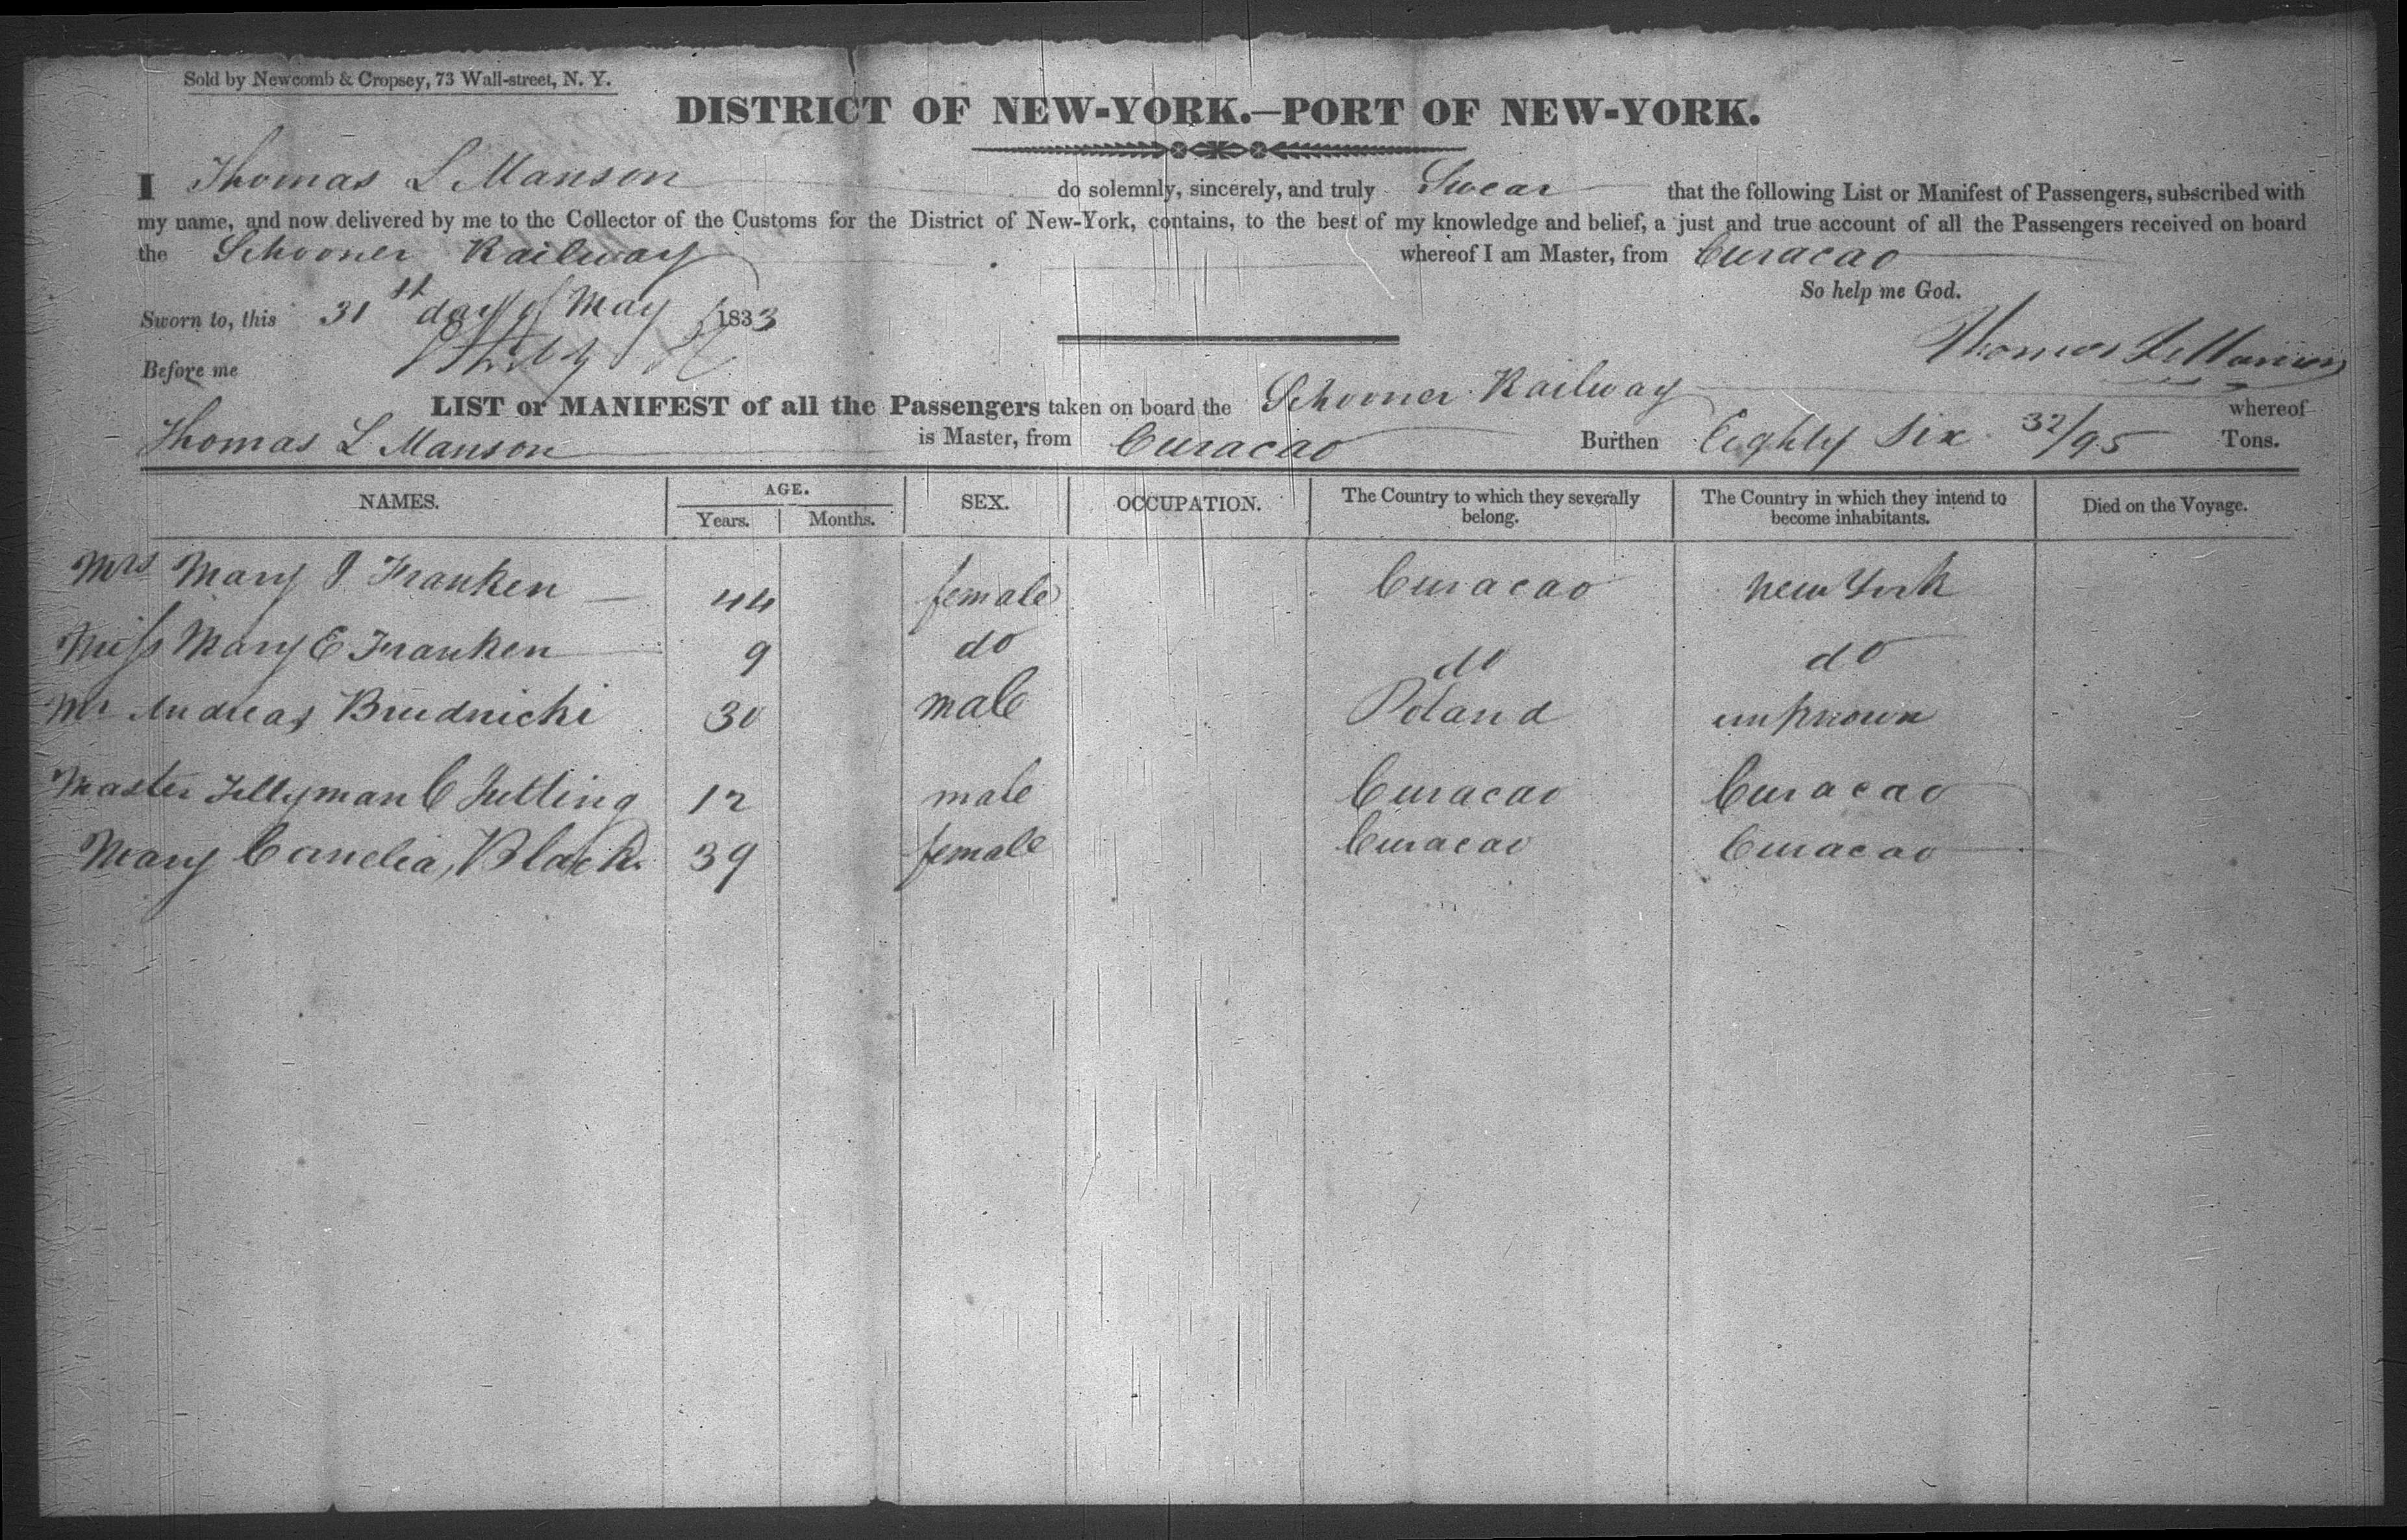 Sold by Newcomb & Cropsey, 73 Wall-street, N. Y.
DISTRICT OF NEW-YORK.—PORT OF NEW-YORK.
I Thomas L Manson do solemnly, sincerely, and truly Swear that the following List or Manifest of Passengers, subscribed with
my name, and now delivered by me to the Collector of the Customs for the District of New-York, contains, to the best of my knowledge and belief, a just and true account of all the Passengers received on board
the Schooner Railway whereof I am Master, from Curacao
So help me God.
Sworn to, this 31st day of May 1833
Thomas L Manson
Before me
LIST or MANIFEST of all the Passengers taken on board the Schooner Railway whereof
Thomas L Manson is Master, from Curacao Burthen Eighty Six 32/95 Tons.
NAMES. AGE. SEX. OCCUPATION. The Country to which they severally belong. The Country in which they intend to become inhabitants. Died on the Voyage.
Years. Months.
Mrs Mary J Franken 44 female Curacao New York
Miss Mary E Franken 9 do do do
Mr Andreas Brudnicki 30 male Poland unknown
Master C Jutting 12 male Curacao Curacao
Mary Cornelia, Black. 39 female Curacao Curacao